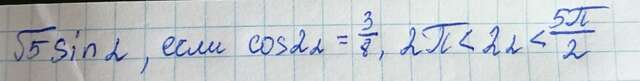 √5 sin α, если cos2α = 3/8, 2π < 2α < 5π/2